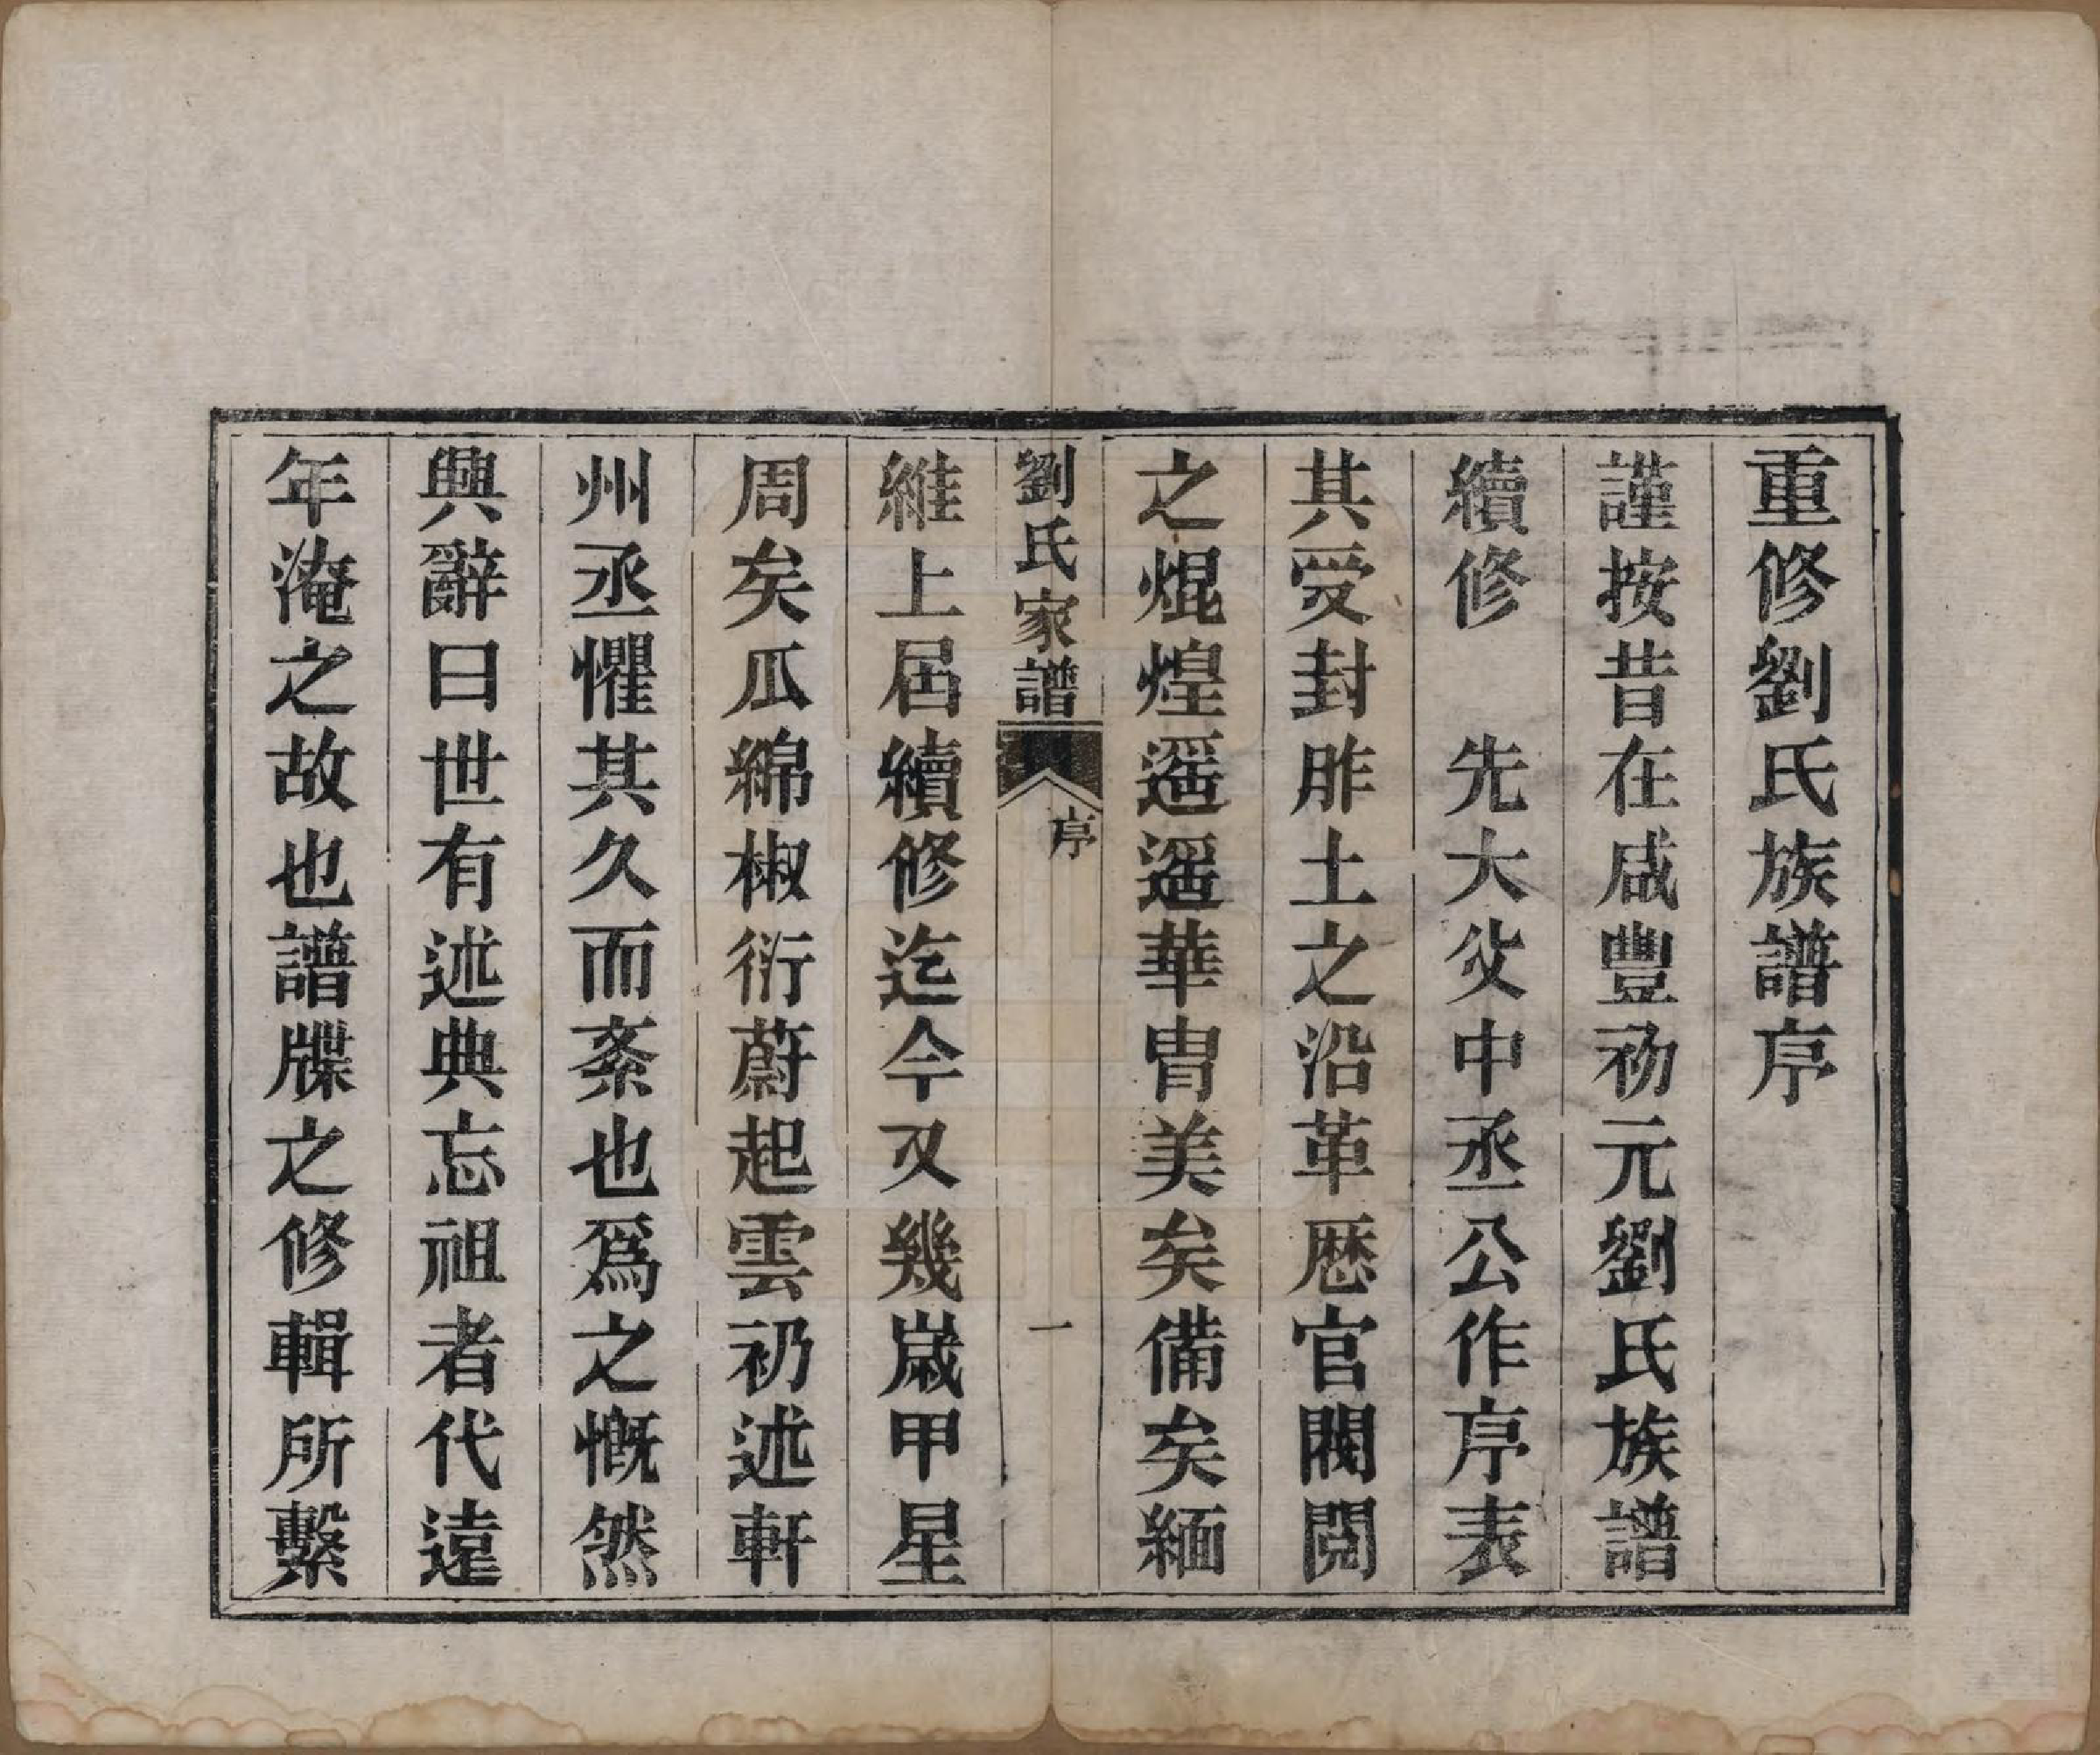 重修劉氏族譜序
謹按昔在咸豐初元劉氏族譜
續修　先大父中丞公作序表
其受封胙土之沿革歷官閥閱
之焜煌遥遥華胄美矣備矣緬
劉氏家譜　序　一
維上屆續修迄今又幾歲甲星
周矣瓜綿椒衍蔚起雲礽述軒
州丞懼其久而紊也爲之慨然
興辭曰世有述典忘祖者代遠
年淹之故也譜牒之修輯所繫